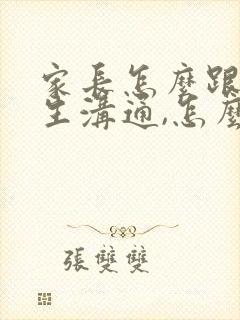 家長怎麼跟
生溝通,怎麼
張雙雙